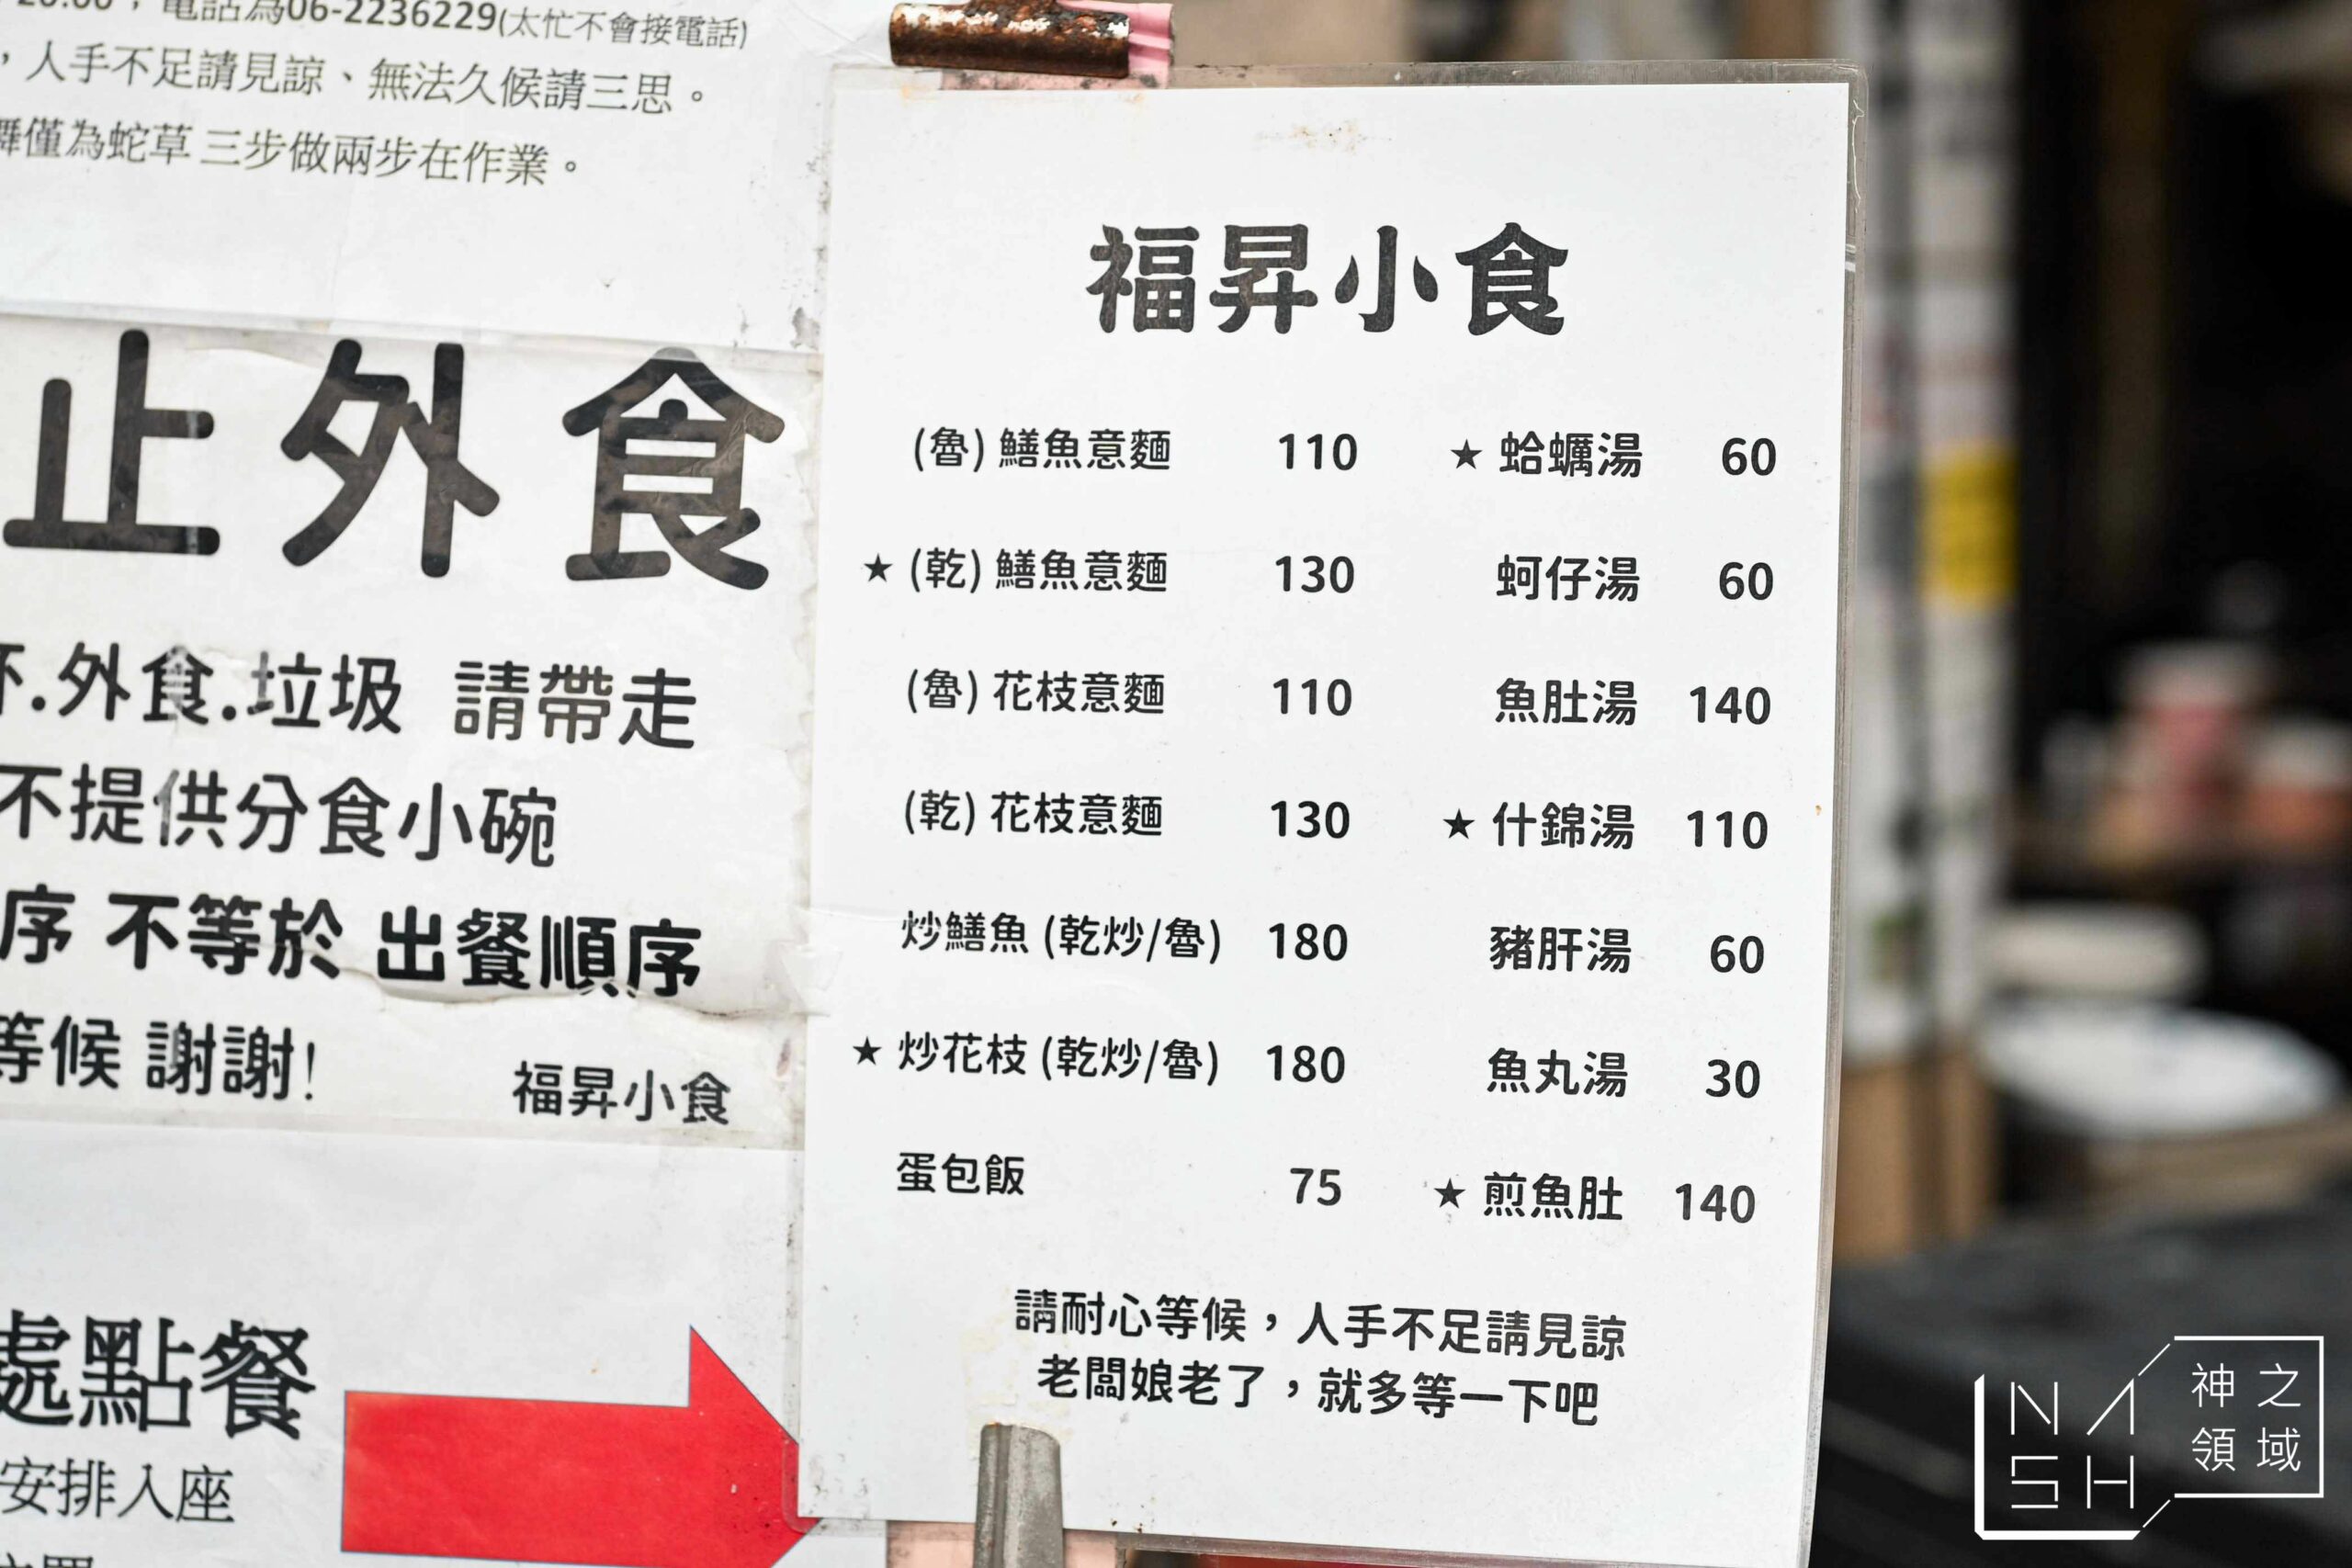 電話為06-2236229(太忙不會接電話)
，人手不足請見諒、無法久候請三思。
僅為蛇草 三步做兩步在作業。
止外食
.外食.垃圾 請帶走
不提供分食小碗
序 不等於 出餐順序
等候 謝謝!
福昇小食
處點餐
安排入座
福昇小食
(魯) 鱔魚意麵 110
★ (乾) 鱔魚意麵 130
(魯) 花枝意麵 110
(乾) 花枝意麵 130
炒鱔魚 (乾炒/魯) 180
★ 炒花枝 (乾炒/魯) 180
蛋包飯 75
★ 蛤蠣湯 60
蚵仔湯 60
魚肚湯 140
★ 什錦湯 110
豬肝湯 60
魚丸湯 30
★ 煎魚肚 140
請耐心等候，人手不足請見諒
老闆娘老了，就多等一下吧
NASH
神之
領域